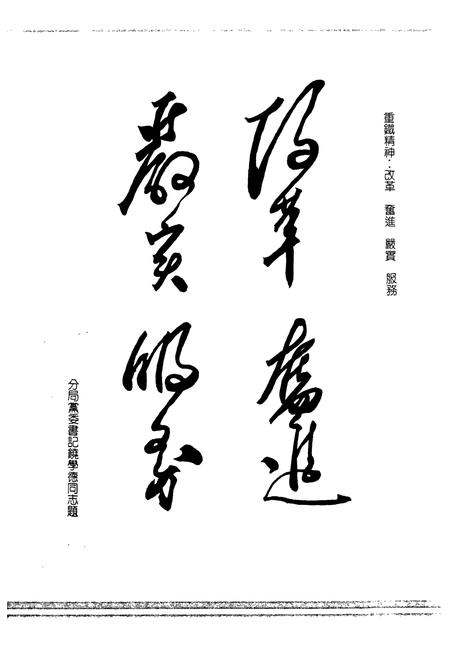 重鐵精神：改革 奮進 嚴實 服務
改革 奮進
嚴实 服务
分局黨委書記饒學德同志題